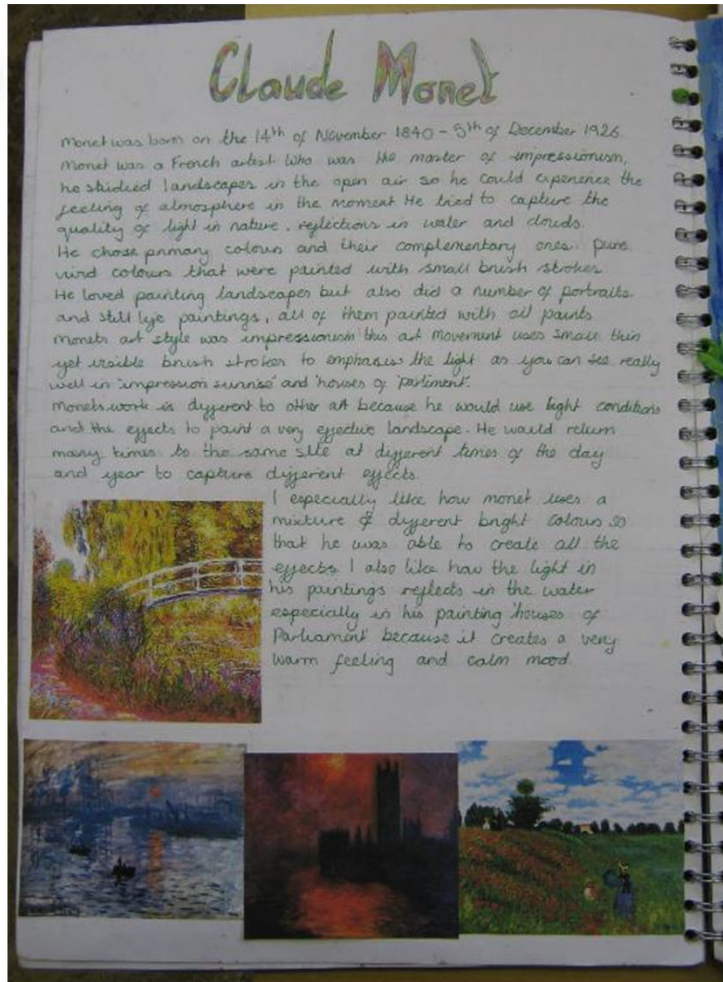 Claude Monet
Monet was born on the 14th of November 1840 - 5th of December 1926
Monet was a French artist who was the master of impressionism,
he studied landscapes in the open air so he could experience the
feeling of atmosphere in the moment He tried to capture the
quality of light in nature, reflections in water and clouds.
He chose primary colours and their complementary ones. pure
vivid colours that were painted with small brush strokes
He loved painting landscapes but also did a number of portraits
and still life paintings, all of them painted with oil paints
Monets art style was impressionism this art movement uses small thin
yet visible brush strokes to emphasise the light as you can see really
well in 'impression sunrise' and 'houses of 'parliment'.
Monets work is different to other art because he would use light conditions
and the effects to paint a very effective landscape. He would return
many times to the same site at different times of the day
and year to capture different effects.
I especially like how monet uses a
mixture of different bright colours so
that he was able to create all the
effects I also like how the light in
his paintings reflects in the water
especially in his painting 'houses of
Parliament because it creates a very
warm feeling and calm mood.